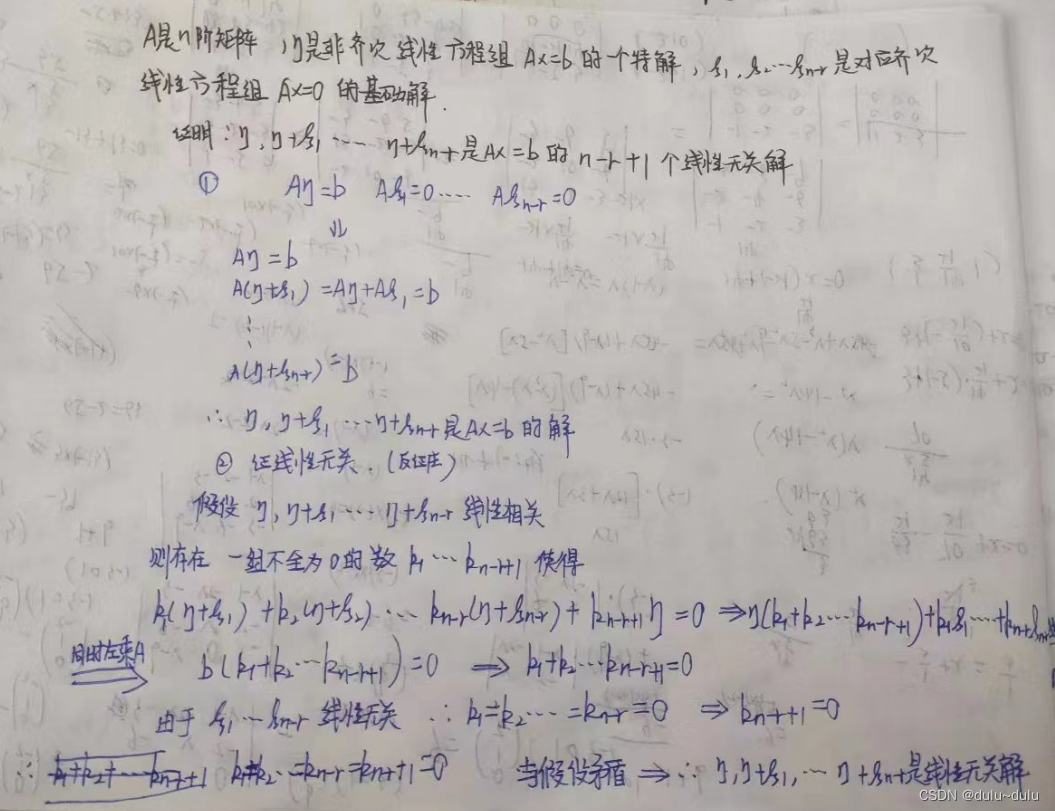 A是n阶矩阵,η是非齐次线性方程组 Ax=b 的一个特解,ξ1,ξ2…ξn-r 是对应齐次
线性方程组 Ax=0 的基础解.
证明:η,η+ξ1 …… η+ξn-r 是Ax=b 的 n-r+1 个线性无关解
① Aη=b Aξ1=0 …… Aξn-r=0
⇓
Aη=b
A(η+ξ1) =Aη+Aξ1=b
⋮
A(η+ξn-r) =b
∴ η,η+ξ1 ……η+ξn-r 是Ax=b 的解
② 证线性无关.(反证法)
假设 η,η+ξ1 …… η+ξn-r 线性相关
则存在 一组不全为0的数 k1 … kn-r+1 使得
k1(η+ξ1) +k2(η+ξ2)… kn-r(η+ξn-r)+ kn-r+1 η =0 ⇒η(k1+k2…kn-r+1)+k1ξ1…+kn-rξn-r
同时左乘A b(k1+k2…kn-r+1)=0 ⇒ k1+k2…kn-r+1=0
由于 ξ1…ξn-r 线性无关 ∴ k1=k2…=kn-r=0 ⇒ kn-r+1=0
∴ k1+k2+…kn-r+1 k1=k2…=kn-r=kn-r+1=0 与假设矛盾 ⇒∴ η,η+ξ1,… η+ξn-r是线性无关解
CSDN @dulu~dulu